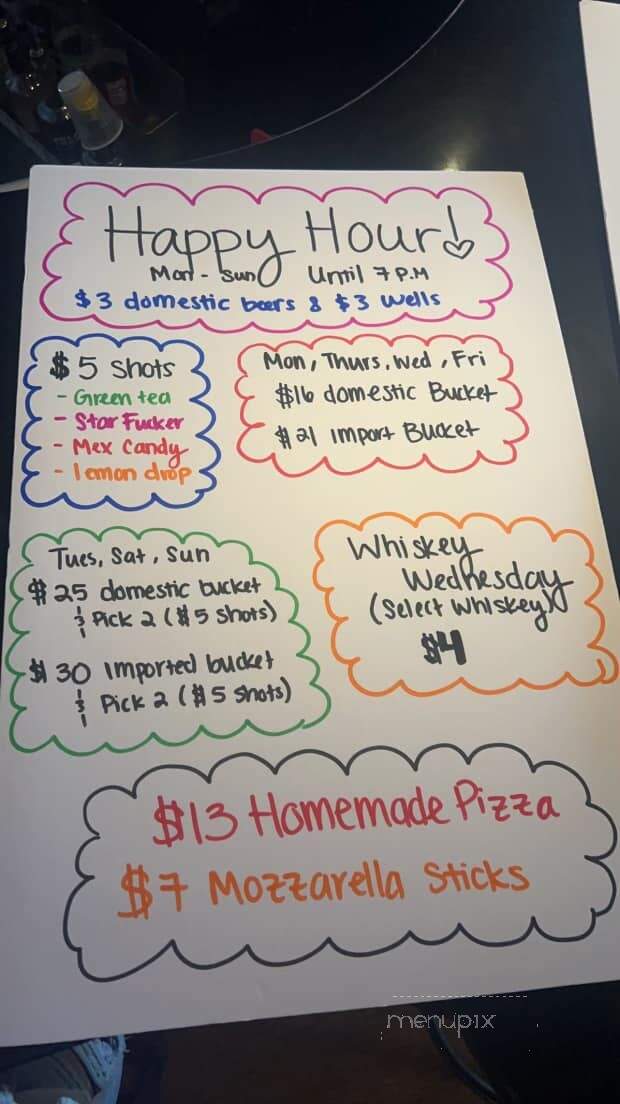 Happy Hour!
Mon - Sun Until 7 P.M
$3 domestic beers & $3 wells
$5 Shots
- Green tea
- Star Fucker
- Mex Candy
- lemon drop
Mon, Thurs, Wed, Fri
$16 domestic Bucket
$21 import Bucket
Tues, Sat, Sun
$25 domestic bucket
& Pick 2 ($5 shots)
$30 Imported bucket
& Pick 2 ($5 Shots)
Whiskey
Wednesday
(Select Whiskey)
$4
$13 Homemade Pizza
$7 Mozzarella Sticks
menupix